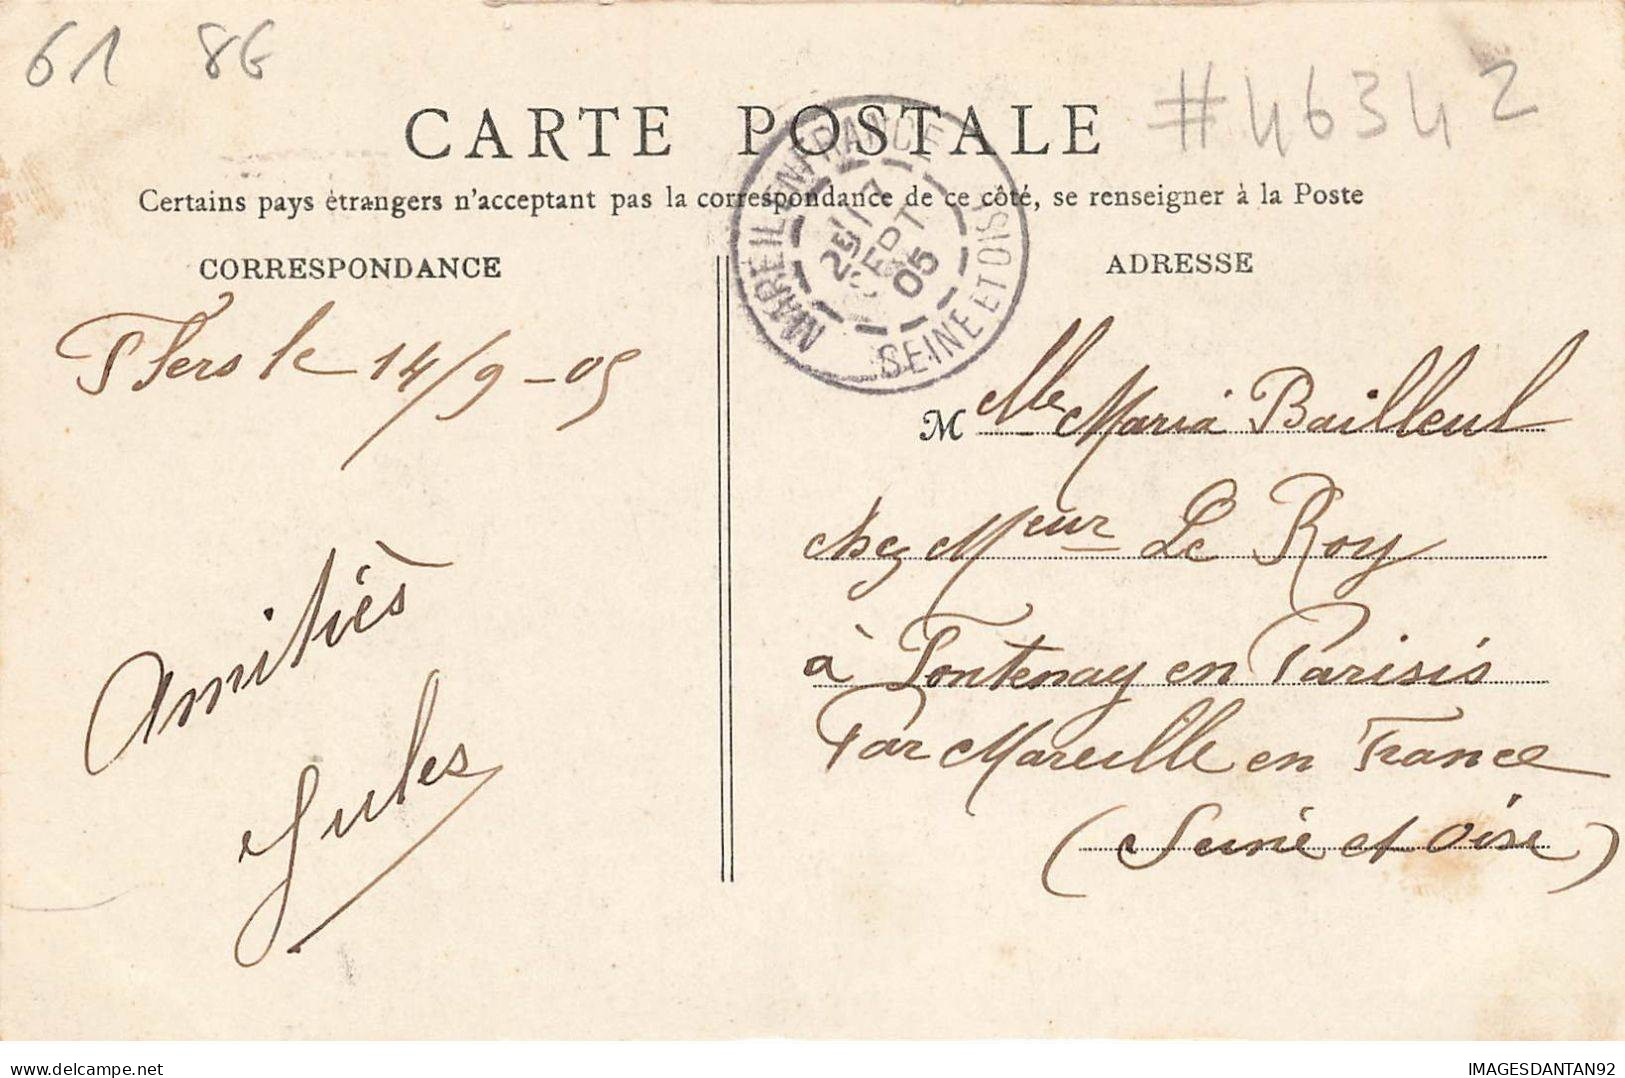 61 8G
#46342
CARTE POSTALE
Certains pays étrangers n'acceptant pas la correspondance de ce côté, se renseigner à la Poste
CORRESPONDANCE
ADRESSE
MAREIL-EN-FRANCE
17
SEPT
05
SEINE ET OISE
Flers le 14/9-05
Amitiés
Jules
M lle Maria Bailleul
chez Mr eur Le Roy
à Fontenay en Parisis
Par Mareille en France
(Seine et Oise)
IMAGESDANTAN92